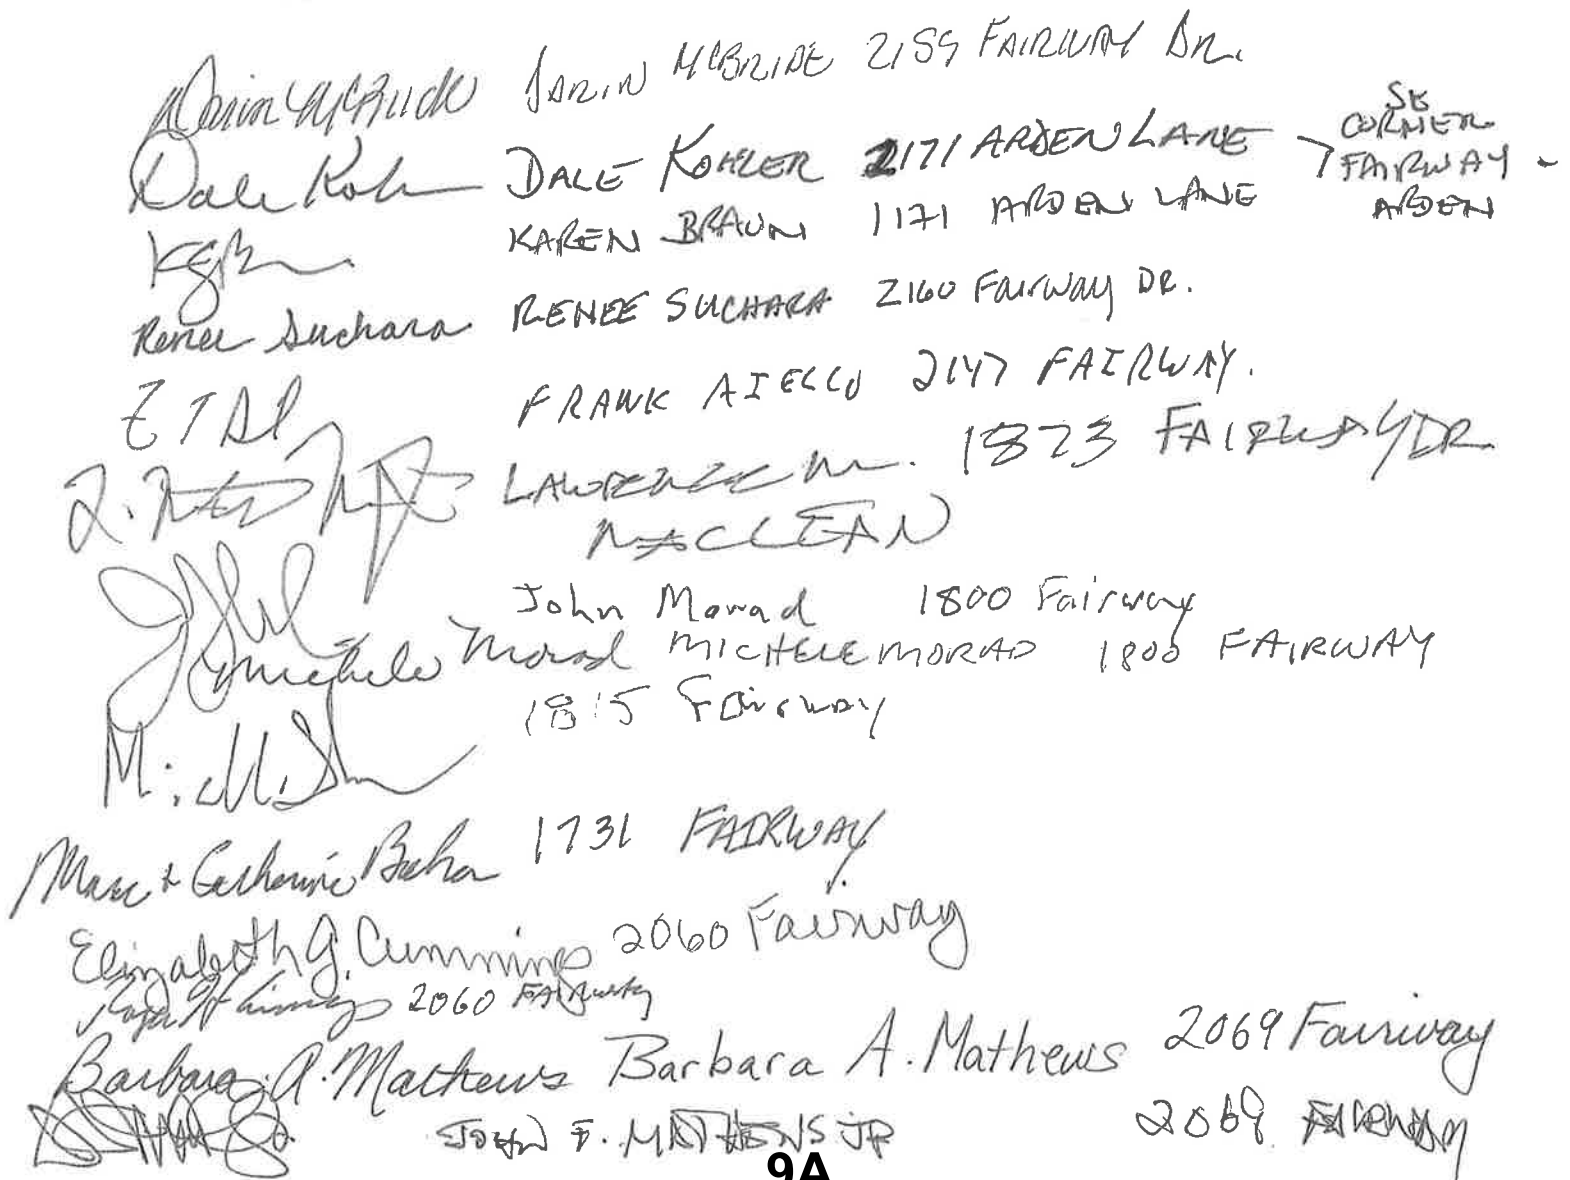 Darin McBride DARIN MCBRIDE 2159 FAIRWAY DR.
Dale Koh DALE KOHLER 2171 ARDEN LANE SE CORNER FAIRWAY - ARDEN
KAREN BRAUN 1171 ARDEN LANE
Renee Suchara RENEE SUCHARA 2160 FAIRWAY DR.
FRANK AIELLO 2147 FAIRWAY.
LAWRENCE M. 1873 FAIRWAY DR
MACLEAN
John Morad 1800 Fairway
Michele Morad MICHELE MORAD 1800 FAIRWAY
1815 Fairway
Marc & Catherine 1731 FAIRWAY
Elizabeth G. Cummings 2060 Fairway
2060 FAIRWAY
Barbara A. Mathews Barbara A. Mathews 2069 Fairway
JOHN F. MATHEWS JR 2069 FAIRWAY
9A